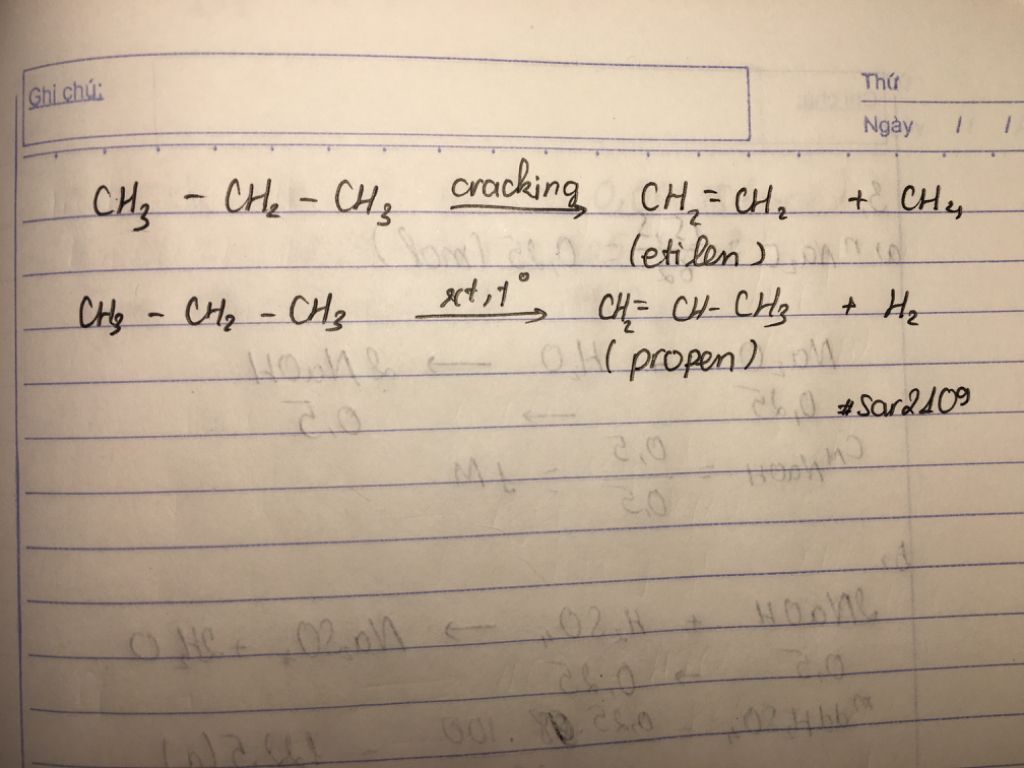 Ghi chú:
Thứ
Ngày / /
CH₃ – CH₂ – CH₃ cracking → CH₂ = CH₂ + CH₄
(etilen)
CH₃ – CH₂ – CH₃ xt, t° → CH₂ = CH – CH₃ + H₂
(propen)
#Sar2109